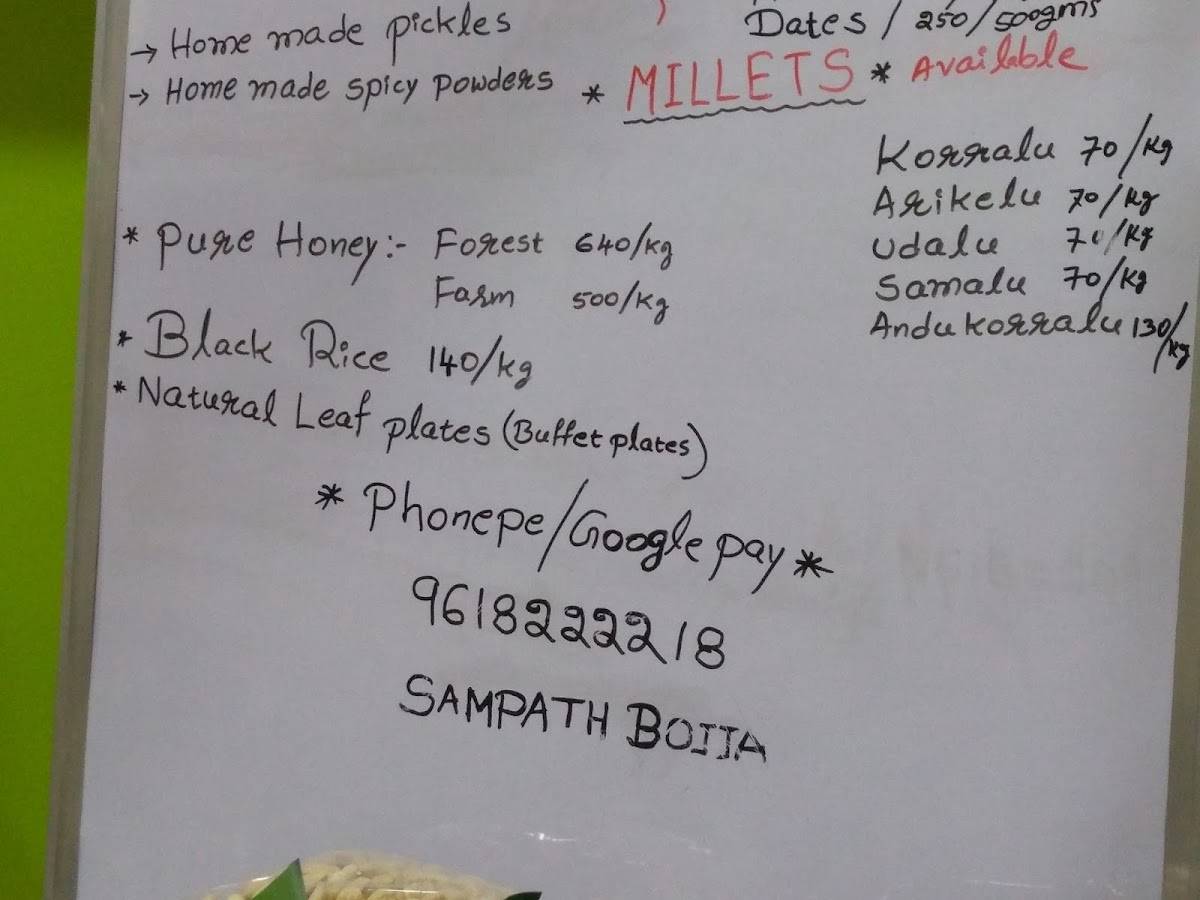 → Home made pickles
Dates / 250/500gms
→ Home made spicy powders
* MILLETS * Available
Korralu 70/kg
Arikelu 70/kg
Udalu 70/kg
Samalu 70/kg
Andukorralu 130/kg
* Pure Honey:- Forest 640/kg
Farm 500/kg
* Black Rice 140/kg
* Natural Leaf plates (Buffet plates)
* Phonepe/Google pay *
9618222218
SAMPATH BOJJA